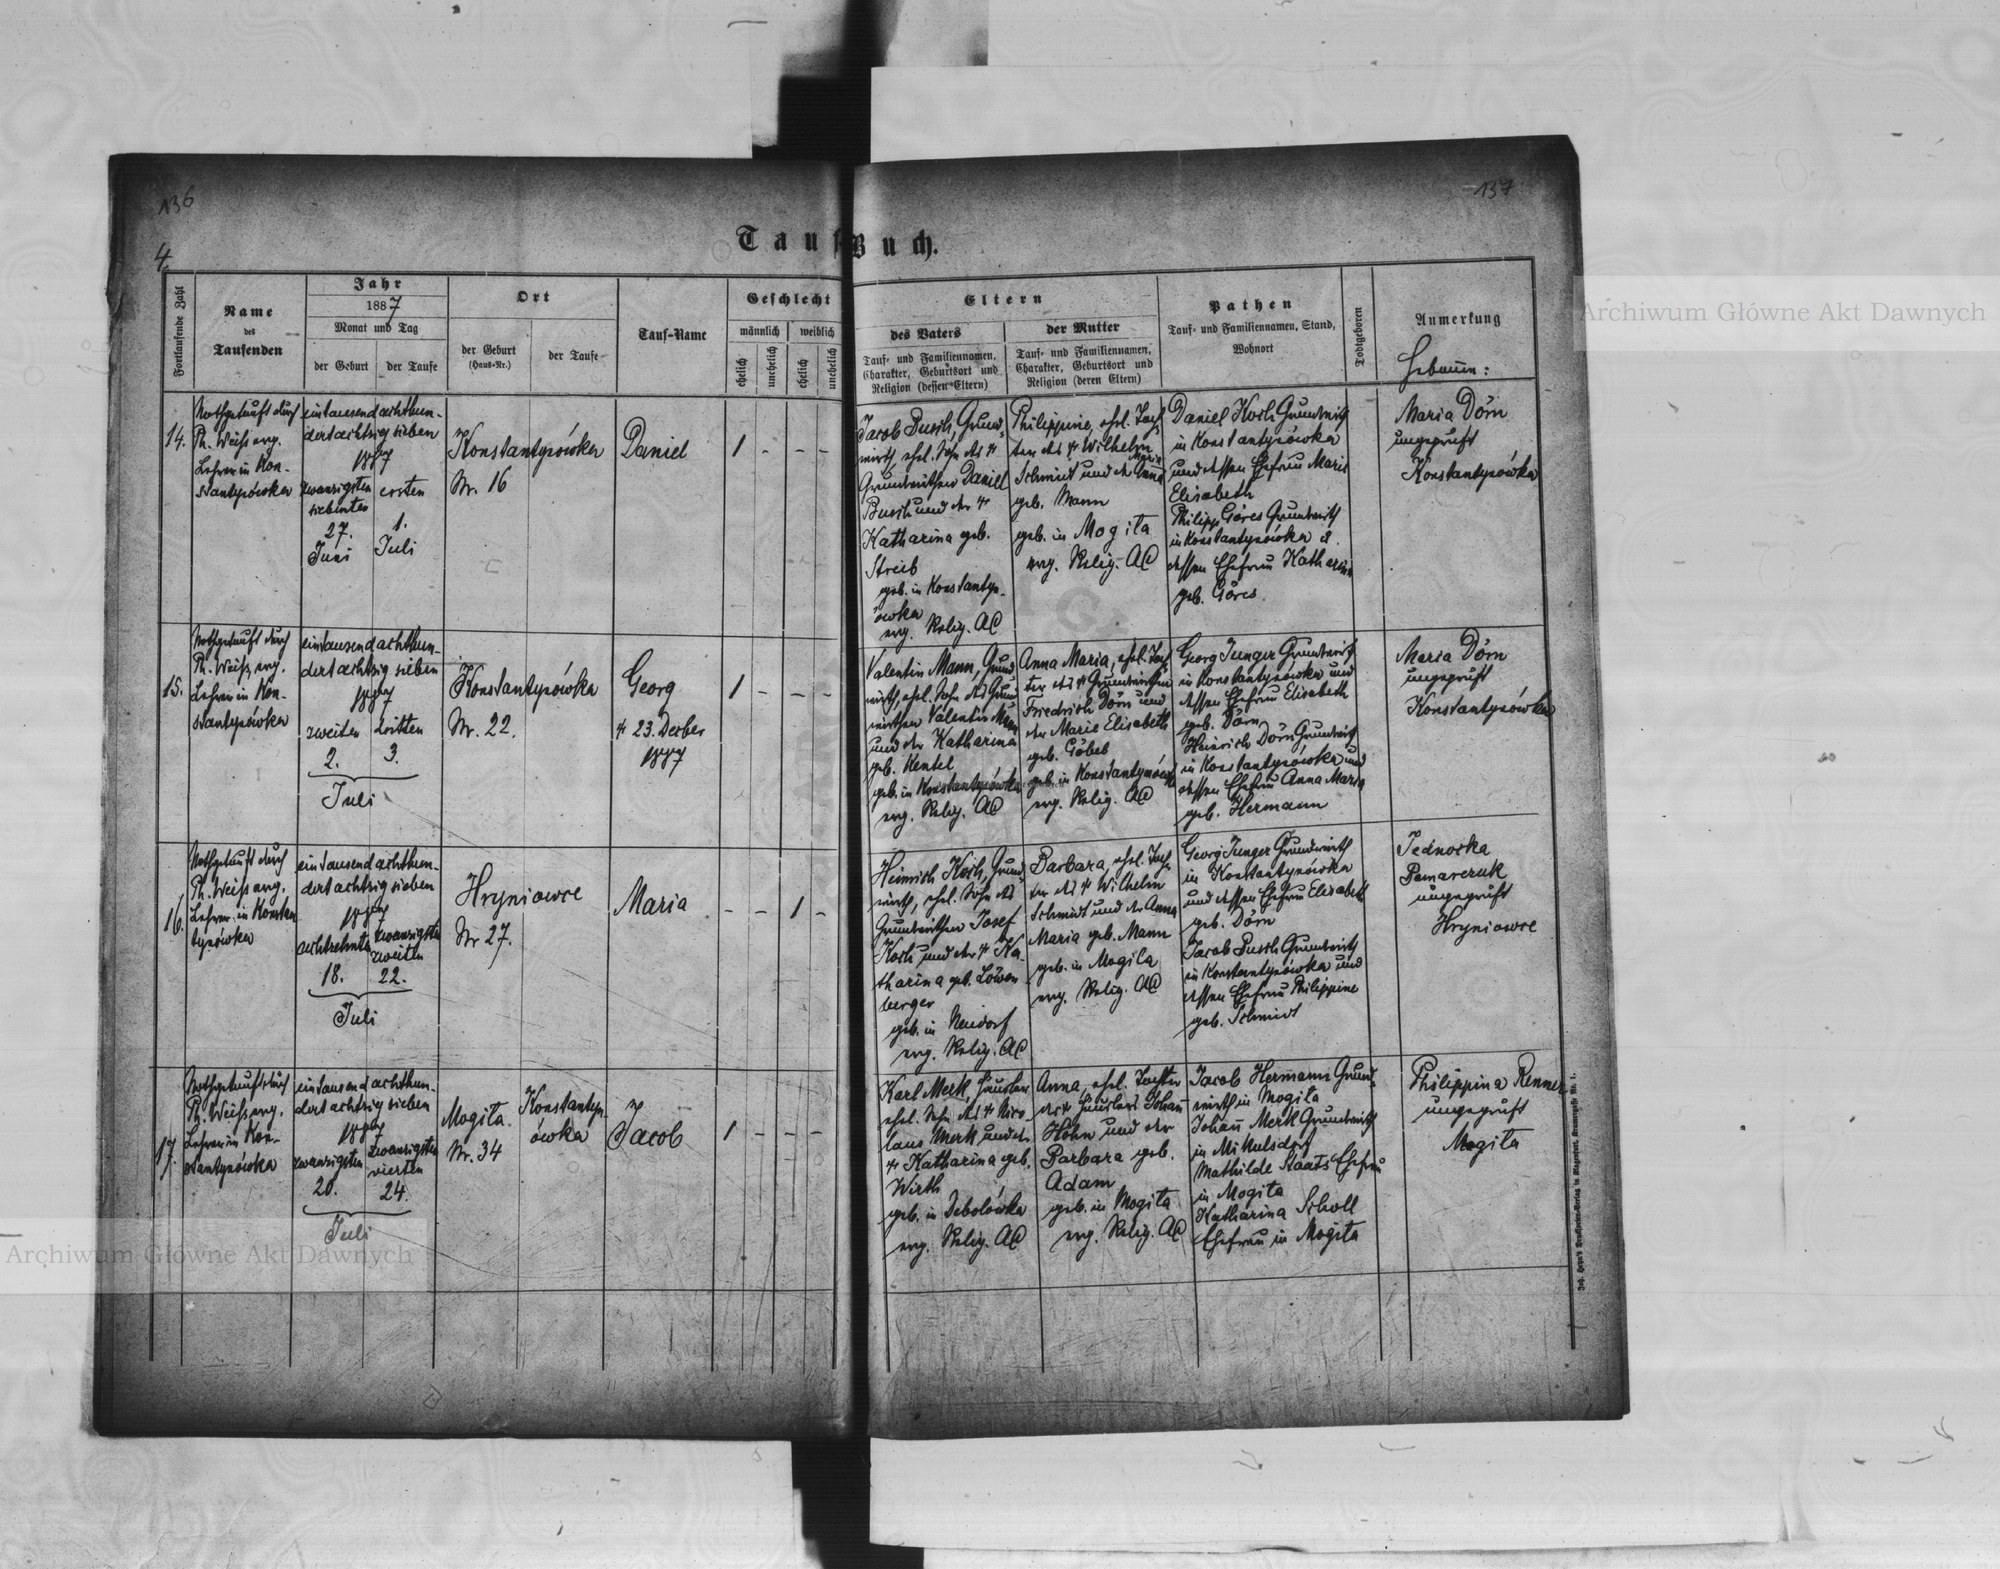 136
137
4.
Tauf-Buch.
Fortlaufende Zahl
Name
des
Taufenden
Jahr
1887
Monat und Tag
der Geburt
der Taufe
Ort
der Geburt
(Haus-Nr.)
der Taufe
Tauf-Name
Geschlecht
männlich
weiblich
ehelich
unehelich
ehelich
unehelich
Eltern
des Vaters
Tauf- und Familiennamen,
Charakter, Geburtsort und
Religion (dessen Eltern)
der Mutter
Tauf- und Familiennamen,
Charakter, Geburtsort und
Religion (deren Eltern)
Pathen
Tauf- und Familiennamen, Stand,
Wohnort
Todtgeboren
Anmerkung
Hebamme:
14.
Nothgetauft durch
Ph. Weiss evg.
Lehrer in Kon-
stantysówka
eintausend achthun-
dert achtzig sieben
1887
zwanzigsten
siebenten
27.
Juni
ersten
1.
Juli
Konstantysówka
Nr. 16
Daniel
1 - - -
Jacob Busch, Grund-
wirth, ehel. Sohn des †
Grundwirthen Daniel
Busch und der †
Katharina geb.
Streib
geb. in Konstanty-
ówka
evg. Relig. AC
Philippine, ehel. Toch-
ter des † Wilhelm
Schmidt und der Anna
Maria
geb. Mann
geb. in Mogila
evg. Relig. AC
Daniel Koch Grundwirth
in Konstantysówka
und dessen Ehefrau Maria
Elisabeth
Philipp Göres Grundwirth
in Konstantysówka u.
dessen Ehefrau Katharina
geb. Göres
Maria Dörn
ungeprüft
Konstantysówka
15.
Nothgetauft durch
Ph. Weiss, evg.
Lehrer in Kon-
stantysówka
eintausend achthun-
dert achtzig sieben
1887
zweiten
2.
dritten
3.
Juli
Konstantysówka
Nr. 22.
Georg
† 23. Decber
1887
1 - - -
Valentin Mann, Grund-
wirth, ehel. Sohn des Grund-
wirthen Valentin Mann
und der Katharina
geb. Hentel
geb. in Konstantysówka
evg. Relig. AC
Anna Maria, ehel. Toch-
ter des † Grundwirthen
Friedrich Dörn und
der Marie Elisabeth
geb. Göbel
geb. in Konstantysówka
evg. Relig. AC
Georg Junger Grundwirth
in Konstantysówka und
dessen Ehefrau Elisabeth
geb. Dörn
Heinrich Dörn Grundwirth
in Konstantysówka und
dessen Ehefrau Anna Maria
geb. Hermann
Maria Dörn
ungeprüft
Konstantysówka
16.
Nothgetauft durch
Ph. Weiss evg.
Lehrer in Konstan
tysówka
eintausend achthun-
dert achtzig sieben
1887
achtzehnten
18.
zwanzigsten
zweiten
22.
Juli
Hryniowce
Nr 27.
Maria
- - 1 -
Heinrich Koch, Grund-
wirth, ehel. Sohn des
Grundwirthen Josef
Koch und der † Ka-
tharina geb. Löwen-
berger
geb. in Neudorf
evg. Relig. AC
Barbara, ehel. Toch-
ter des † Wilhelm
Schmidt und der Anna
Maria geb. Mann
geb. in Mogila
evg. Relig. AC
Georg Junger Grundwirth
in Konstantysówka
und dessen Ehefrau Elisabeth
geb. Dörn
Jacob Busch Grundwirth
in Konstantysówka und
dessen Ehefrau Philippine
geb. Schmidt
Jednocka
Pamarczuk
ungeprüft
Hryniowce
17.
Nothgetauft durch
Ph. Weiss evg.
Lehrer in Kon-
stantysówka
eintausend achthun-
dert achtzig sieben
1887
zwanzigsten
20.
zwanzigsten
vierten
24.
Juli
Mogila
Nr. 34
Konstantys-
ówka
Jacob
1 - - -
Karl Merk, Häusler
ehel. Sohn des † Nico-
laus Merk und der
† Katharina geb.
Wirth
geb. in Debolówka
evg. Relig. AC
Anna, ehel. Tochter
des † Häuslers Johann
Höhn und der
Barbara geb.
Adam
geb. in Mogila
evg. Relig. AC
Jacob Hermann Grund-
wirth in Mogila
Johann Merk Grundwirth
in Mikulsdorf
Mathilde Staats Ehefrau
in Mogila
Katharina Scholl
Ehefrau in Mogila
Philippina Renner
ungeprüft
Mogila
Archiwum Główne Akt Dawnych
Archiwum Główne Akt Dawnych